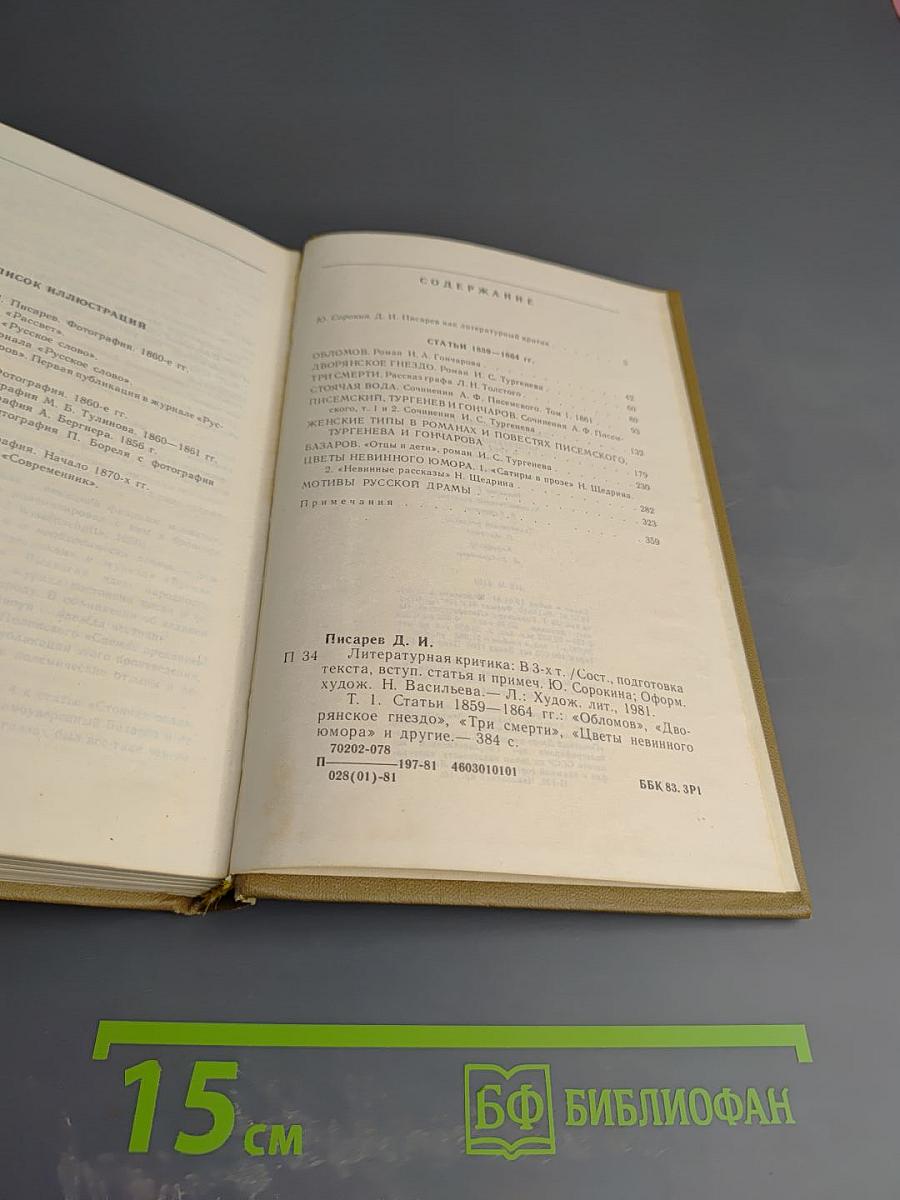 ПИСОК ИЛЛЮСТРАЦИЙ
Писарев. Фотография. 1860-е гг.
«Рассвет».
«Русское слово».
нала «Русское слово».
ров». Первая публикация в журнале «Рус-
отография. 1860-е гг.
графия М. Б. Тулинова. 1860—1861 гг.
рафия А. Бергнера. 1856 г.
тография П. Бореля с фотографии
афия. Начало 1870-х гг.
«Современник».
СОДЕРЖАНИЕ
Ю. Сорокин. Д. И. Писарев как литературный критик . . . . 5
СТАТЬИ 1859—1864 гг.
ОБЛОМОВ. Роман И. А. Гончарова . . . . 42
ДВОРЯНСКОЕ ГНЕЗДО. Роман И. С. Тургенева . . . . 60
ТРИ СМЕРТИ. Рассказ графа Л. Н. Толстого . . . . 80
СТОЯЧАЯ ВОДА. Сочинения А. Ф. Писемского. Том 1, 1861 . . 93
ПИСЕМСКИЙ, ТУРГЕНЕВ И ГОНЧАРОВ. Сочинения А. Ф. Писем-
ского, т. 1 и 2. Сочинения И. С. Тургенева . . . . 132
ЖЕНСКИЕ ТИПЫ В РОМАНАХ И ПОВЕСТЯХ ПИСЕМСКОГО,
ТУРГЕНЕВА И ГОНЧАРОВА . . . . 179
БАЗАРОВ. «Отцы и дети», роман И. С. Тургенева . . . . 230
ЦВЕТЫ НЕВИННОГО ЮМОРА. 1. «Сатиры в прозе» Н. Щедрина.
2. «Невинные рассказы» Н. Щедрина . . . . 282
МОТИВЫ РУССКОЙ ДРАМЫ . . . . 323
Примечания . . . . 359
Писарев Д. И.
П 34 Литературная критика: В 3-х т. /Сост., подготовка
текста, вступ. статья и примеч. Ю. Сорокина; Оформ.
худож. Н. Васильева.— Л.: Худож. лит., 1981.
Т. 1. Статьи 1859—1864 гг.: «Обломов», «Дво-
рянское гнездо», «Три смерти», «Цветы невинного
юмора» и другие.— 384 с.
70202-078
П————197-81 4603010101
028(01)-81
ББК 83. 3Р1
15 см
БФ БИБЛИОФАН